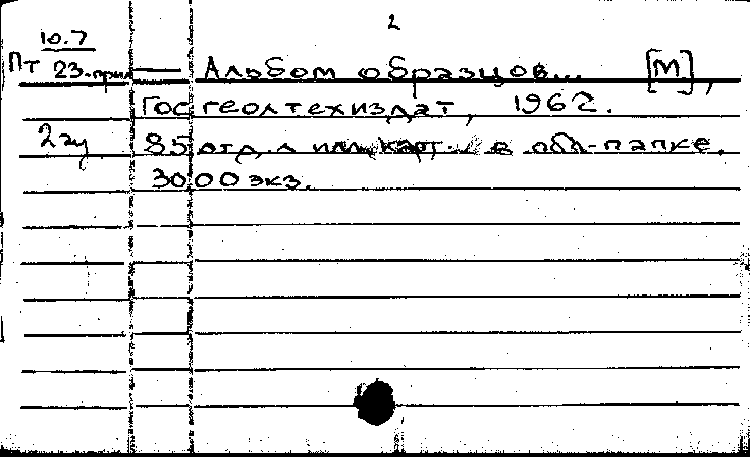 2
10.7
Пт 23-прил — Альбом образцов... [М],
Госгеолтехиздат, 1962.
85 отд. л илл., карт. в обл-папке.
3000 экз.